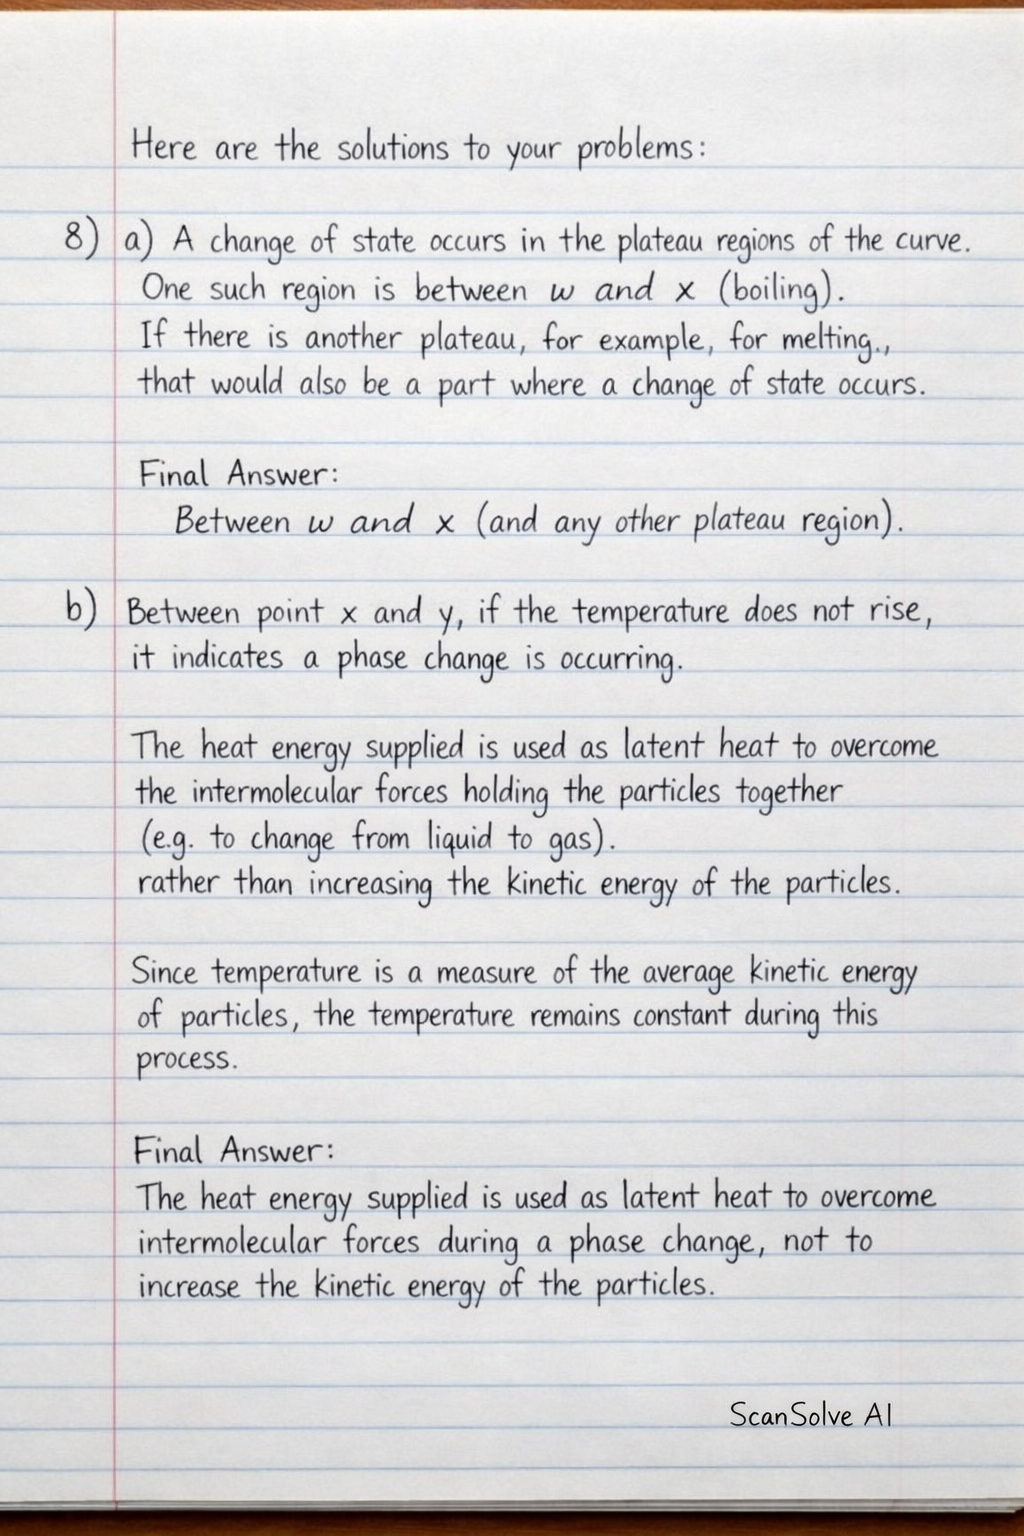 Here are the solutions to your problems:
8) a) A change of state occurs in the plateau regions of the curve.
One such region is between w and x (boiling).
If there is another plateau, for example, for melting.,
that would also be a part where a change of state occurs.
Final Answer:
Between w and x (and any other plateau region).
b) Between point x and y, if the temperature does not rise,
it indicates a phase change is occurring.
The heat energy supplied is used as latent heat to overcome
the intermolecular forces holding the particles together
(e.g. to change from liquid to gas).
rather than increasing the kinetic energy of the particles.
Since temperature is a measure of the average kinetic energy
of particles, the temperature remains constant during this
process.
Final Answer:
The heat energy supplied is used as latent heat to overcome
intermolecular forces during a phase change, not to
increase the kinetic energy of the particles.
ScanSolve AI